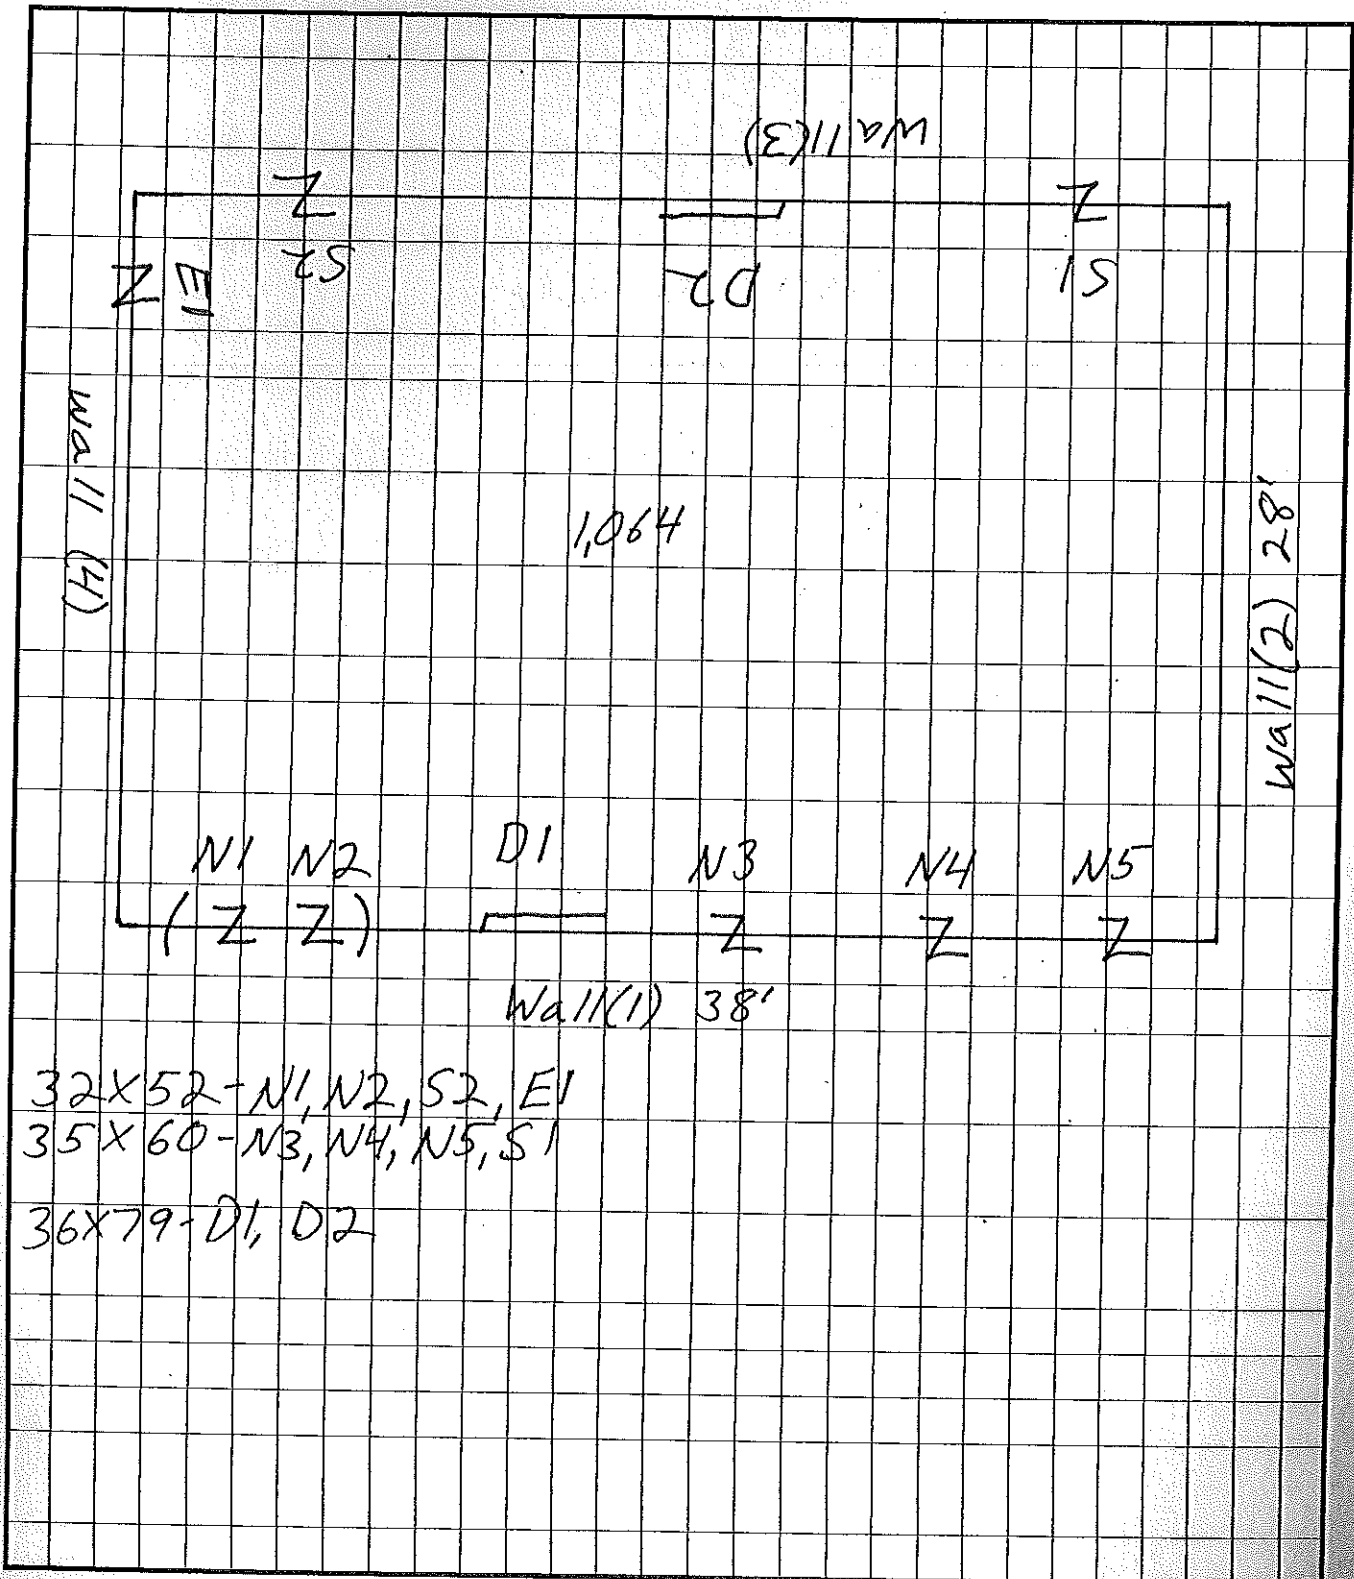 wall(3)
Z
Z
S2
D2
S1
Z
E1
wall (4)
1,064
Wall(2) 28'
N1 N2 D1 N3 N4 N5
(Z Z) Z Z Z
Wall(1) 38'
32X52-N1, N2, S2, E1
35X60-N3, N4, N5, S1
36X79-D1, D2